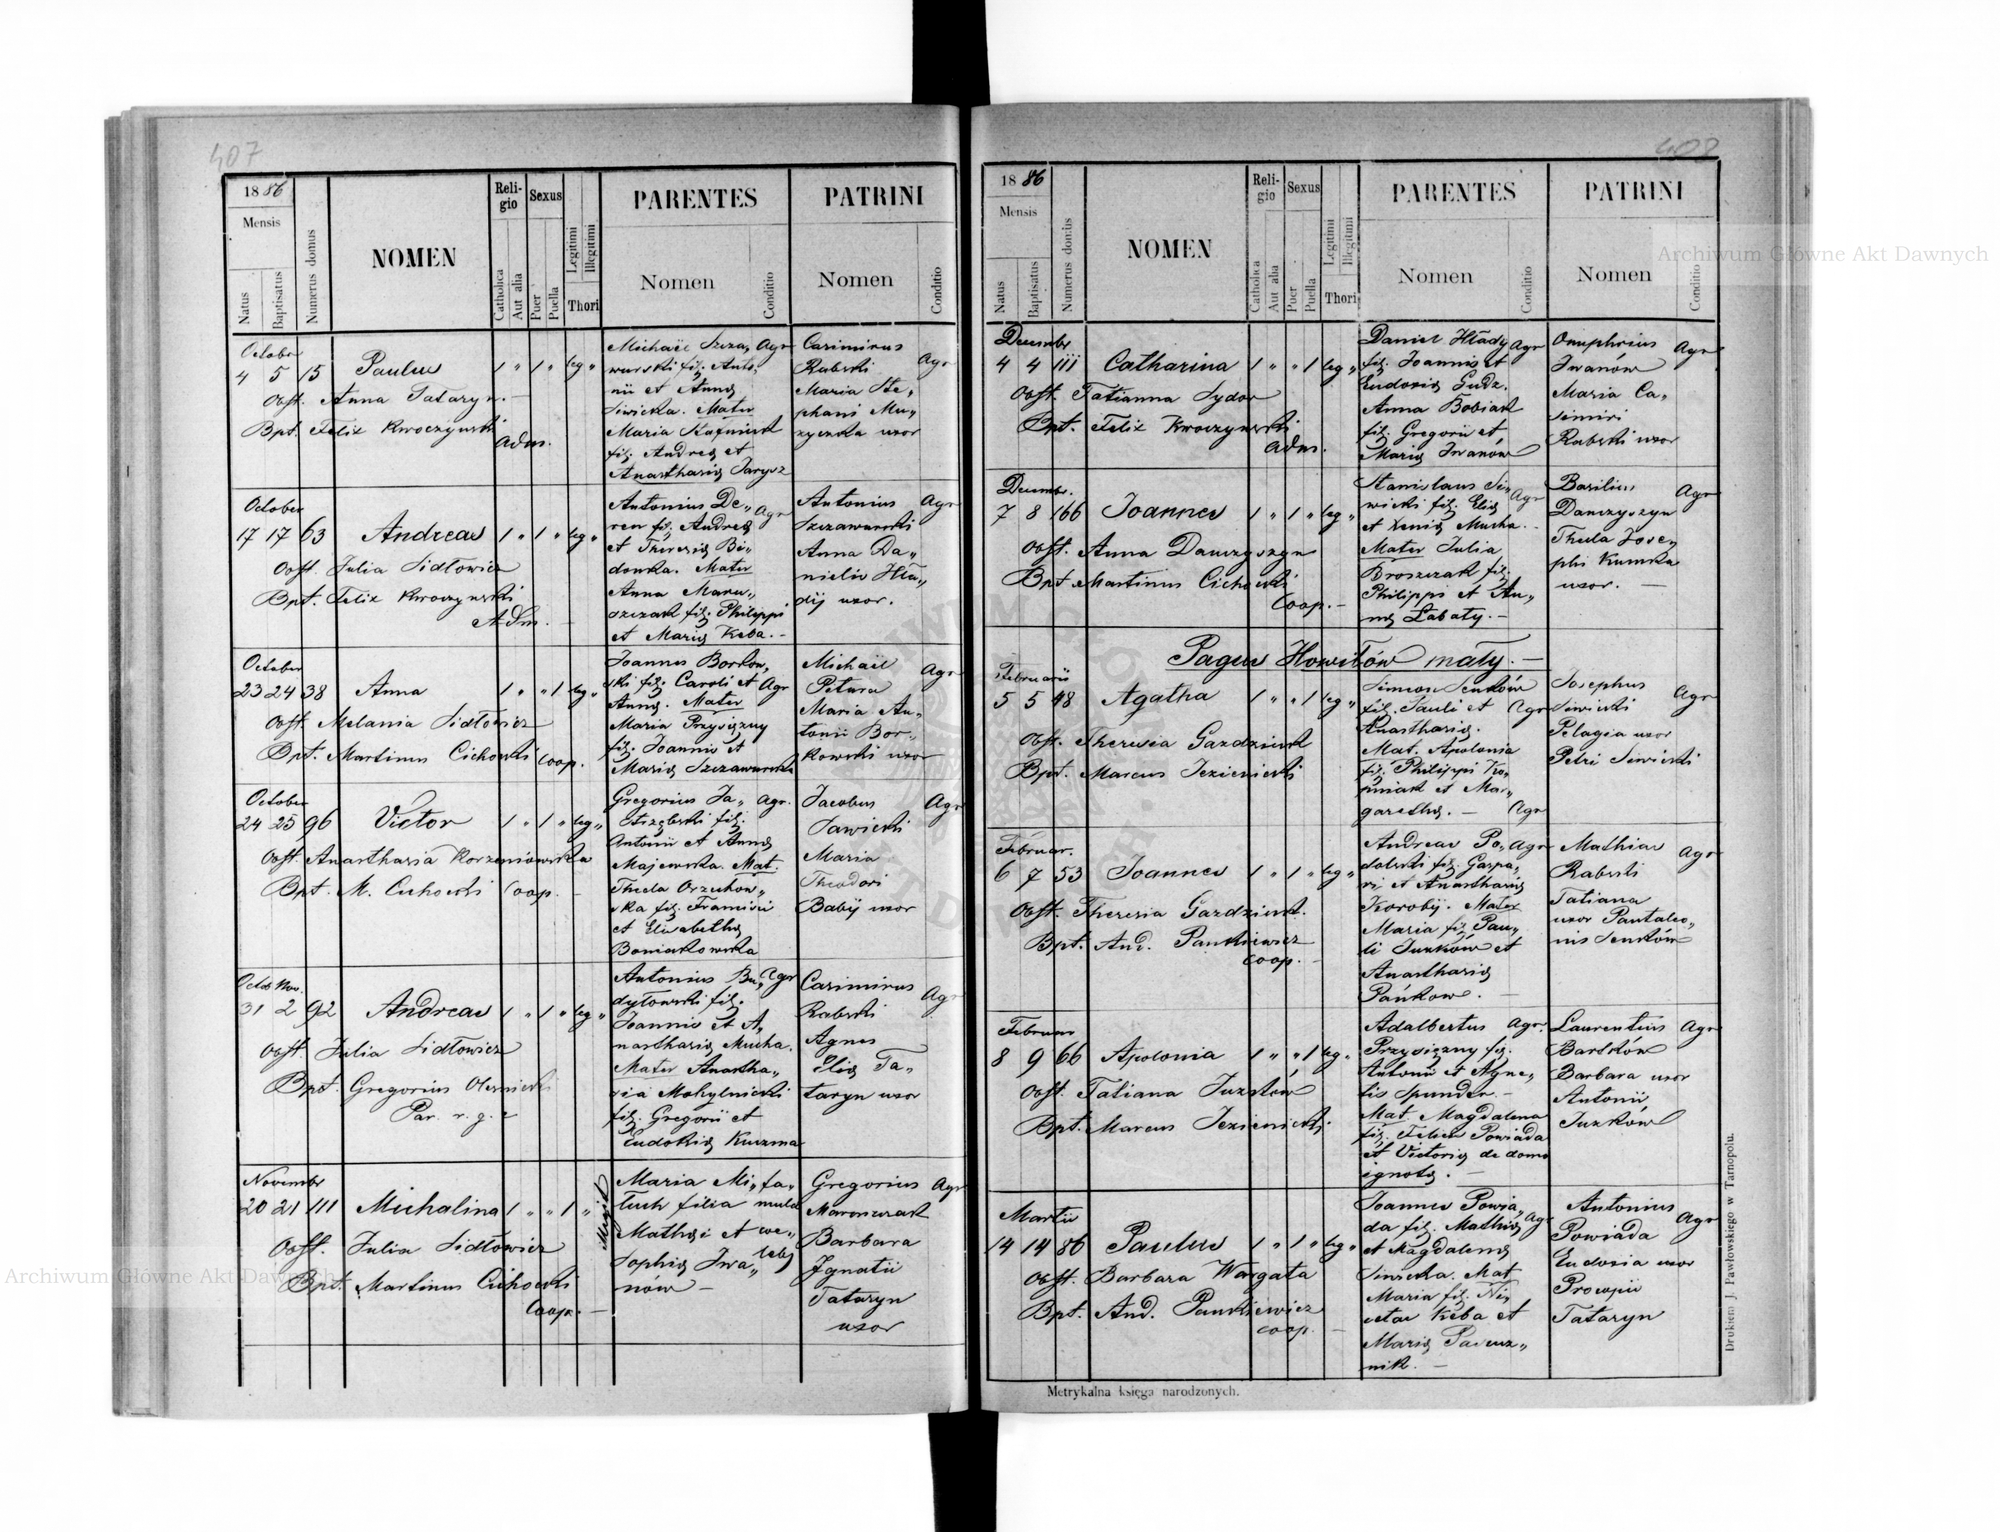 407
18 86
Mensis
Natus
Baptisatus
Numerus domus
NOMEN
Religio
Catholica
Aut alia
Sexus
Puer
Puella
Legitimi
Illegitimi
Thori
PARENTES
Nomen
Conditio
PATRINI
Nomen
Conditio
October
4 5 15 Paulus 1 " 1 " leg "
Obst. Anna Tataryn.
Bpt. Felix Kwoczynski
Adm.
Michaël Szcza" Agr
wurski fil. Anto"
nii et Annę
Siwicka. Mater
Maria Kaźmirek
fil. Andreę et
Anasthasię Jarysz
Casimirus Agr
Rabski
Maria Ste"
phani Mu"
zyczka uxor
October
17 17 63 Andreas 1 " 1 " leg "
Obst. Julia Sidłowicz
Bpt. Felix Kwoczynski
Adm.
Antonius De" Agr
ren fil. Andreę
et Theresię Bi"
donka. Mater
Anna Maru"
szczak fil. Philippi
et Marię Keba. —
Antonius Agr
Szczawurski
Anna Da"
nielis Hła"
dij uxor.
October
23 24 38 Anna 1 " " 1 leg "
Obst. Melania Sidłowicz
Bpt. Martinus Cichocki Coop.
Joannes Borkow"
ski fil. Caroli et Agr
Annę. Mater
Maria Przysiężny
fil. Joannis et
Marię Szczawurska
Michaël Agr
Petura
Maria An"
tonii Bor"
kowski uxor
October
24 25 96 Victor 1 " 1 " leg "
Obst. Anasthasia Korzeniowska
Bpt. M. Cichocki Coop. —
Gregorius Ja" Agr.
strzębski fil.
Antonii et Annę
Majewska. Mat.
Thecla Orzechow"
ska fil. Francisci
et Elisabethę
Boniakowska
Jacobus Agr
Sawicki
Maria
Theodori
Babij uxor
Octob Nov.
31 2 92 Andreas 1 " 1 " leg "
Obst. Julia Sidłowicz
Bpt. Gregorius Olesnicki
Par. r. g. c
Antonius Bu" Agr
dyłowski fil.
Joannis et A"
nasthasię Mucha.
Mater Anastha"
sia Mohylnicki
fil. Gregorii et
Eudokię Kuzma
Casimirus
Rabski Agr
Agnes
Elię Ta"
taryn uxor
Novembr
20 21 111 Michalina 1 " " 1 "
Obst. Julia Sidłowicz
Bpt. Martinus Cichocki
Coop. —
Maria Mi" fa"
tuch filia mula
Mathęi et
Sophię Iwa"
nów —
Gregorius Agr
Maruszczak
Barbara
Ignatii
Tataryn
uxor
408
18 86
Mensis
Natus
Baptisatus
Numerus domus
NOMEN
Religio
Catholica
Aut alia
Sexus
Puer
Puella
Legitimi
Illegitimi
Thori
PARENTES
Nomen
Conditio
PATRINI
Nomen
Conditio
Decembr
4 4 111 Catharina 1 " " 1 leg "
Obst. Tatianna Sydor
Bpt. Felix Kwoczynski
Adm.
Daniel Hłady Agr
fil. Joannis et
Eudoxię Gudz.
Anna Bobiak
fil. Gregorii et
Marię Iwanów
Onuphrius
Iwanów Agr
Maria Ca"
simiri
Rabski uxor
Decembr.
7 8 166 Joannes 1 " 1 " leg "
Obst. Anna Danczyszyn
Bpt. Martinus Cichocki
Coop. —
Stanislaus Si"
wicki fil. Elię Agr
et Xenię Mucha.
Mater Julia
Broszczak fil.
Philippi et An"
nę Łabaty. —
Basilius Agr
Danczyszyn
Thecla Jose"
phi Kumka
uxor. —
Pagus Howiłów mały. —
Februarii
5 5 48 Agatha 1 " " 1 leg "
Obst. Theresia Gazdziuk
Bpt. Marcus Jezienicki
Simeon Senków
fil. Pauli et Agr
Anasthasię.
Mat. Apolonia
fil. Philippi Ko"
pniak et Mar"
garethę. — Agr
Josephus
Siwicki Agr
Pelagia uxor
Petri Siwicki
Februar.
6 7 53 Joannes 1 " 1 " leg "
Obst. Theresia Gazdziuk.
Bpt. And. Pankiewicz
Coop. —
Andreas Po" Agr
dolski fil. Gaspa"
ri et Anasthasię
Korobij. Mater
Maria fil. Pau"
li Juzków et
Anasthasię
Pańkow. —
Mathias Agr
Rabski
Tatiana
uxor Pantaleo"
nis Senków
Februar
8 9 66 Apolonia 1 " " 1 leg "
Obst. Tatiana Juzków
Bpt. Marcus Jezienicki
Adalbertus Agr.
Przysiężny fil.
Antonii et Agne"
tis Spunder. —
Mat. Magdalena
fil. Felicis Powiada
et Victorię de domo
ignotę. —
Laurentius Agr
Bartków
Barbara uxor
Antonii
Juzków
Martii
14 14 86 Paulus 1 " 1 " leg "
Obst. Barbara Wargata
Bpt. And. Pankiewicz
Coop. —
Joannes Powia"
da fil. Mathię Agr
et Magdalenę
Sinrecka. Mat
Maria fil. Ni"
cetae Keba et
Marię Pasucz"
nik. —
Antonius
Powiada Agr
Eudoxia uxor
Procopii
Tataryn
Metrykalna księga narodzonych.
Drukiem J. Pawłowskiego w Tarnopolu.
Archiwum Główne Akt Dawnych
Archiwum Główne Akt Dawnych